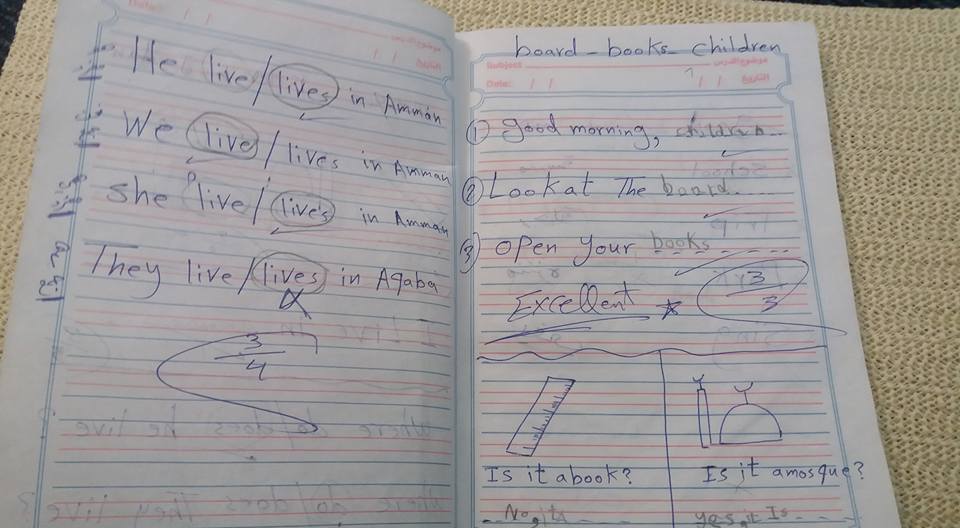 He live/lives in Amman
We live/lives in Amman
she live/lives in Amman
They live/lives in Aqaba
3/4
board - books - children
Subject
Date: / /
① Good morning, children
② Look at The board
③ open your books
Excellent 3/3
Is it a book?
No, it
Is it a mosque?
yes, it Is